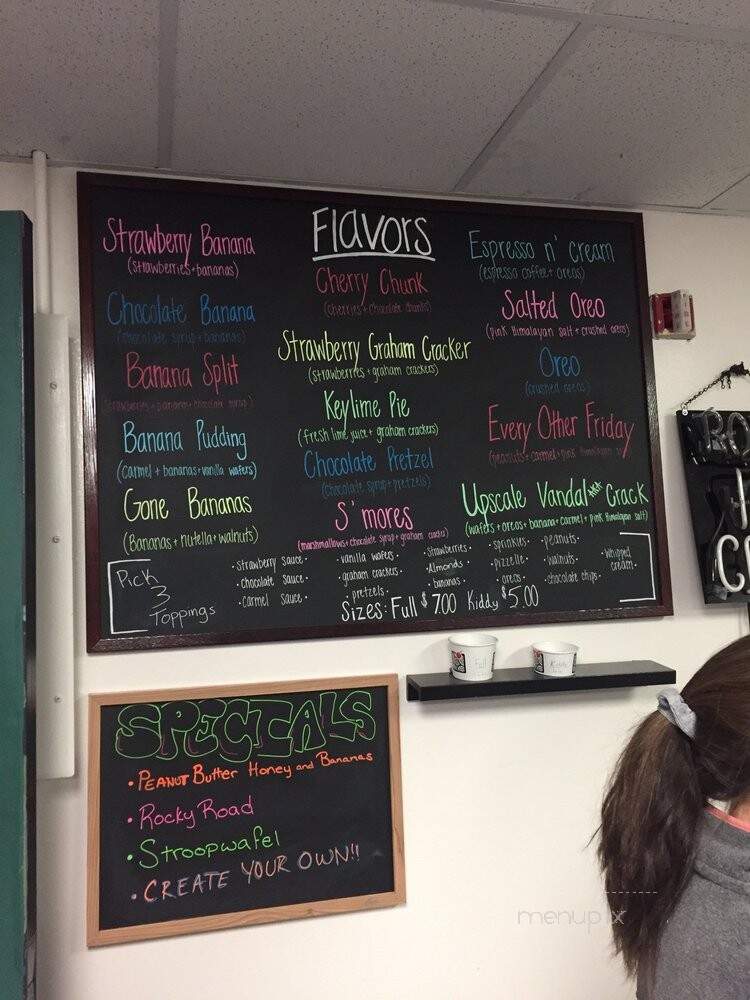 Flavors
Strawberry Banana
(strawberries + bananas)
Chocolate Banana
(chocolate syrup + bananas)
Banana Split
(strawberries + banana + chocolate syrup)
Banana Pudding
(carmel + bananas + vanilla wafers)
Gone Bananas
(Bananas + nutella + walnuts)
Cherry Chunk
(cherries + chocolate chunks)
Strawberry Graham Cracker
(strawberries + graham crackers)
Keylime Pie
(fresh lime juice + graham crackers)
Chocolate Pretzel
(chocolate syrup + pretzels)
S'mores
(marshmallows + chocolate syrup + graham cracker)
Espresso n' cream
(espresso coffee + oreos)
Salted Oreo
(pink Himalayan salt + crushed oreos)
Oreo
(crushed oreos)
Every Other Friday
(peanuts + carmel + pink Himalayan
Upscale Vandal Crack
(wafers + oreos + banana + carmel + pink Himalayan salt)
Pick
3
Toppings
· strawberry sauce ·
· chocolate sauce ·
· carmel sauce ·
· vanilla wafers ·
· graham crackers ·
· pretzels ·
· strawberries ·
· Almonds ·
· bananas ·
· sprinkles ·
· pizzelle ·
· oreos ·
· peanuts ·
· walnuts ·
· chocolate chips ·
· whipped
cream ·
Sizes: Full $7.00 Kiddy $5.00
Full
Kiddy
SPECIALS
· PEANUT Butter Honey and Bananas
· Rocky Road
· Stroopwafel
· CREATE YOUR OWN!!
menupix